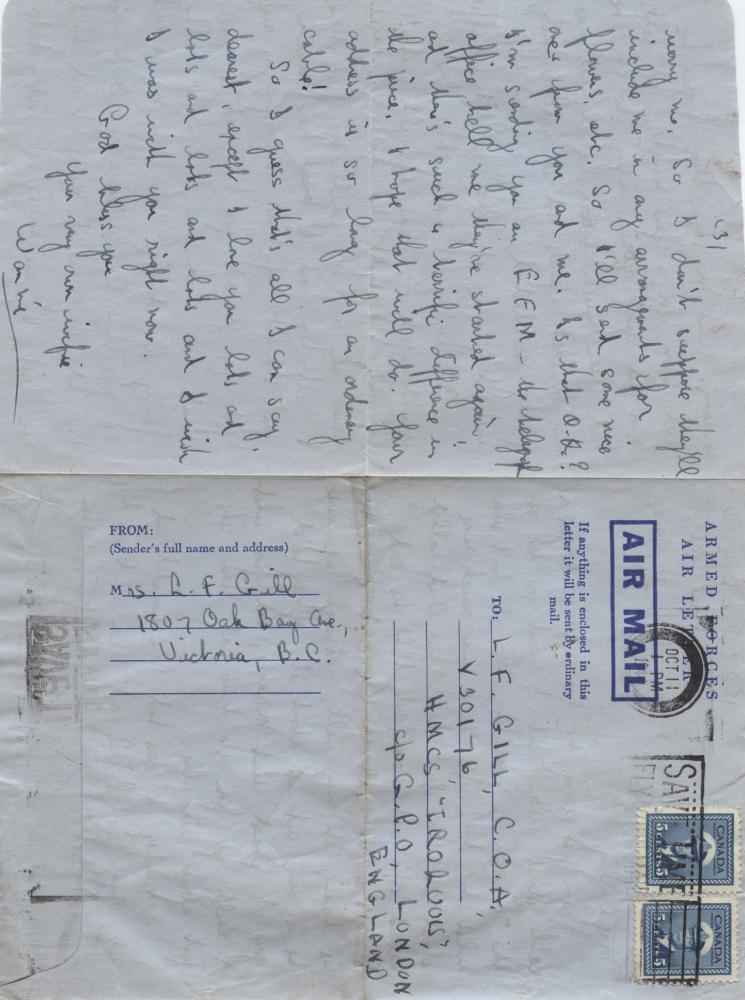 (3)
worry me. So I don't suppose they'll
include me in any arrangements for
flowers, etc. So I'll send some nice
ones from you and me. Is that O.K.?
I'm sending you an EFM – the telegraph
office tell me they're started again!
and there's such a terrific difference in
the price. I hope that will do. Your
address is so long for an ordinary
cable!
So I guess that's all I can say,
dearest, except I love you lots and
lots and lots and lots and I wish
I was with you right now.
God bless you
Your very own wifie
ARMED FORCES
AIR LETTER
AIR MAIL
If anything is enclosed in this
letter it will be sent by ordinary
mail.
OCT 11
PM
SAVE
CANADA
5 CENTS 5
CANADA
5 CENTS 5
TO: L. F. GILL, C.O.A.
V30176
HMCS "IROQUOIS",
c/o G.P.O. LONDON
ENGLAND
FROM:
(Sender's full name and address)
Mrs. L. F. Gill
1807 Oak Bay Ave.,
Victoria, B.C.